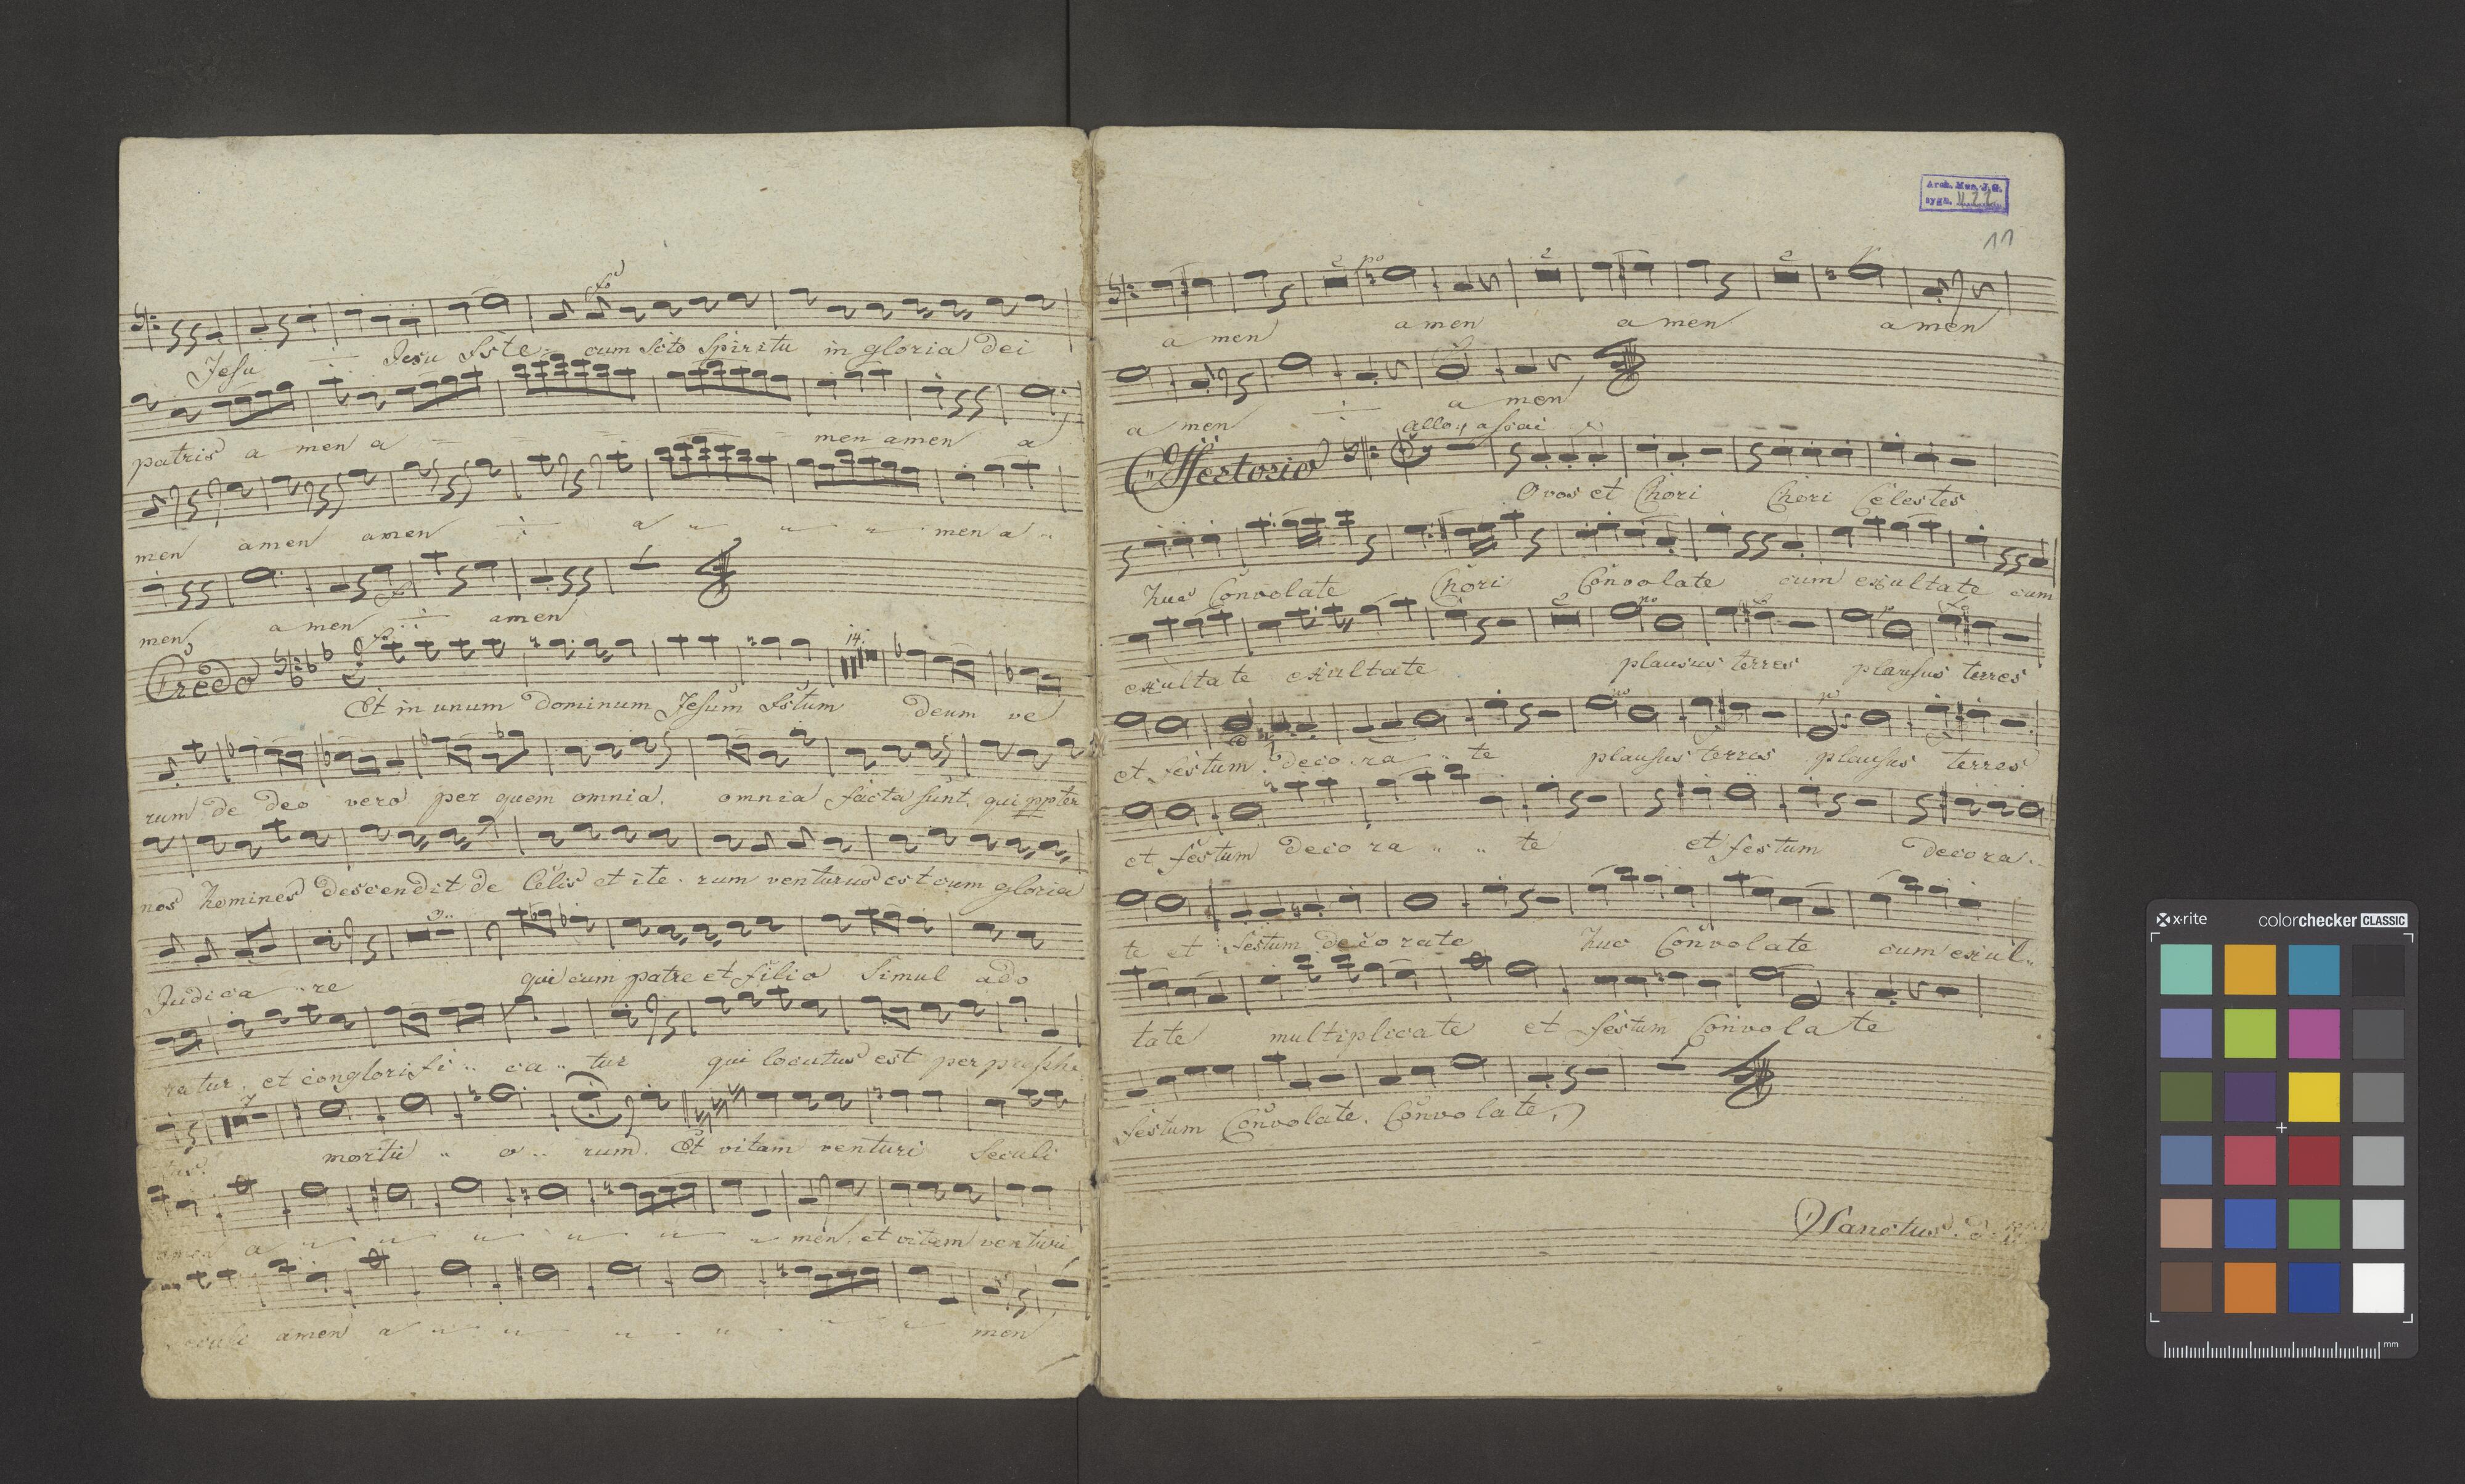 fo
Jesu Jesu Xste cum Scto Spiritu in gloria dei
patris a men a men amen a
men amen amen a men a
men a men amen
Credo fo 14.
Et in unum dominum Jesum Xstum deum ve
rum de deo vero per quem omnia. omnia facta sunt. qui ppter
nos homines descendit de Célis et ite. rum venturus est cum gloria
Judica re qui cum patre et filio Simul ado
ratur. et conglorifi ca tur qui locutus est per prophe
7
tas. mortu o rum. Et vitam venturi Seculi
amen a men. et vitam venturi
seculi amen a men
Arch. Muz. J.G.
sygn.
11
2 po 2 2
a men a men a men a men
a men a men
Offertorio allo assai
O vos et Chori Chori Célestes
huc Convolate Chori Convolate cum exultate cum
2 po po fo
exultate exultate plausus terres plausus terres
po po
et festum deco ra te plausus terres plausus terres
et festum deco ra te et festum decora
te et festum decorate huc Convolate cum exul
tate multiplicate et festum Convola te
festum Convolate. Convolate.
Sanctus.